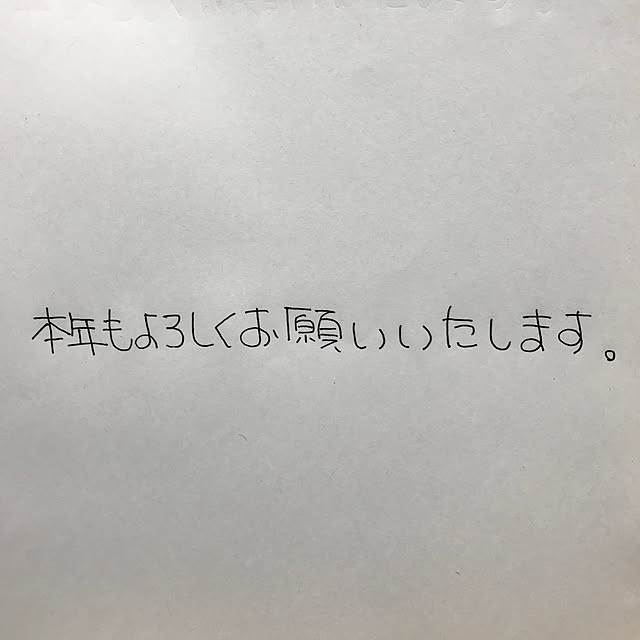 本年もよろしくお願いいたします。